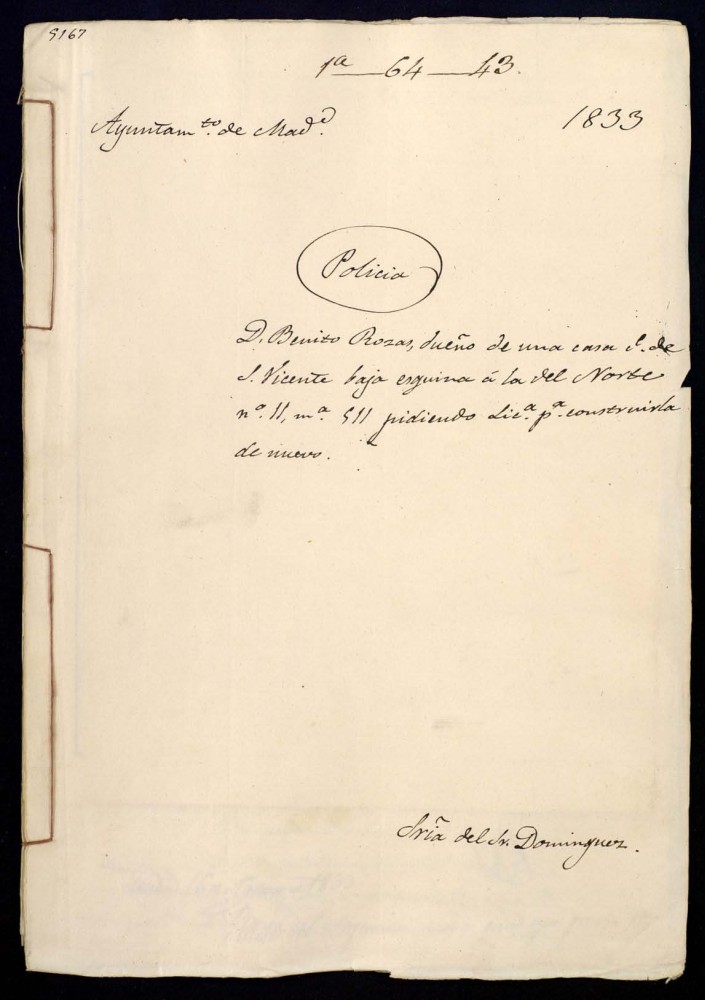 5167
1ª 64 43.
Ayuntamto. de Madd. 1833
Policia
D. Benito Rozas, dueño de una casa C. de
S. Vicente baja esquina á la del Norte
nº. 11, mª. 511 pidiendo Lica. pª. construirla
de nuevo.
Sria del Sr. Dominguez.